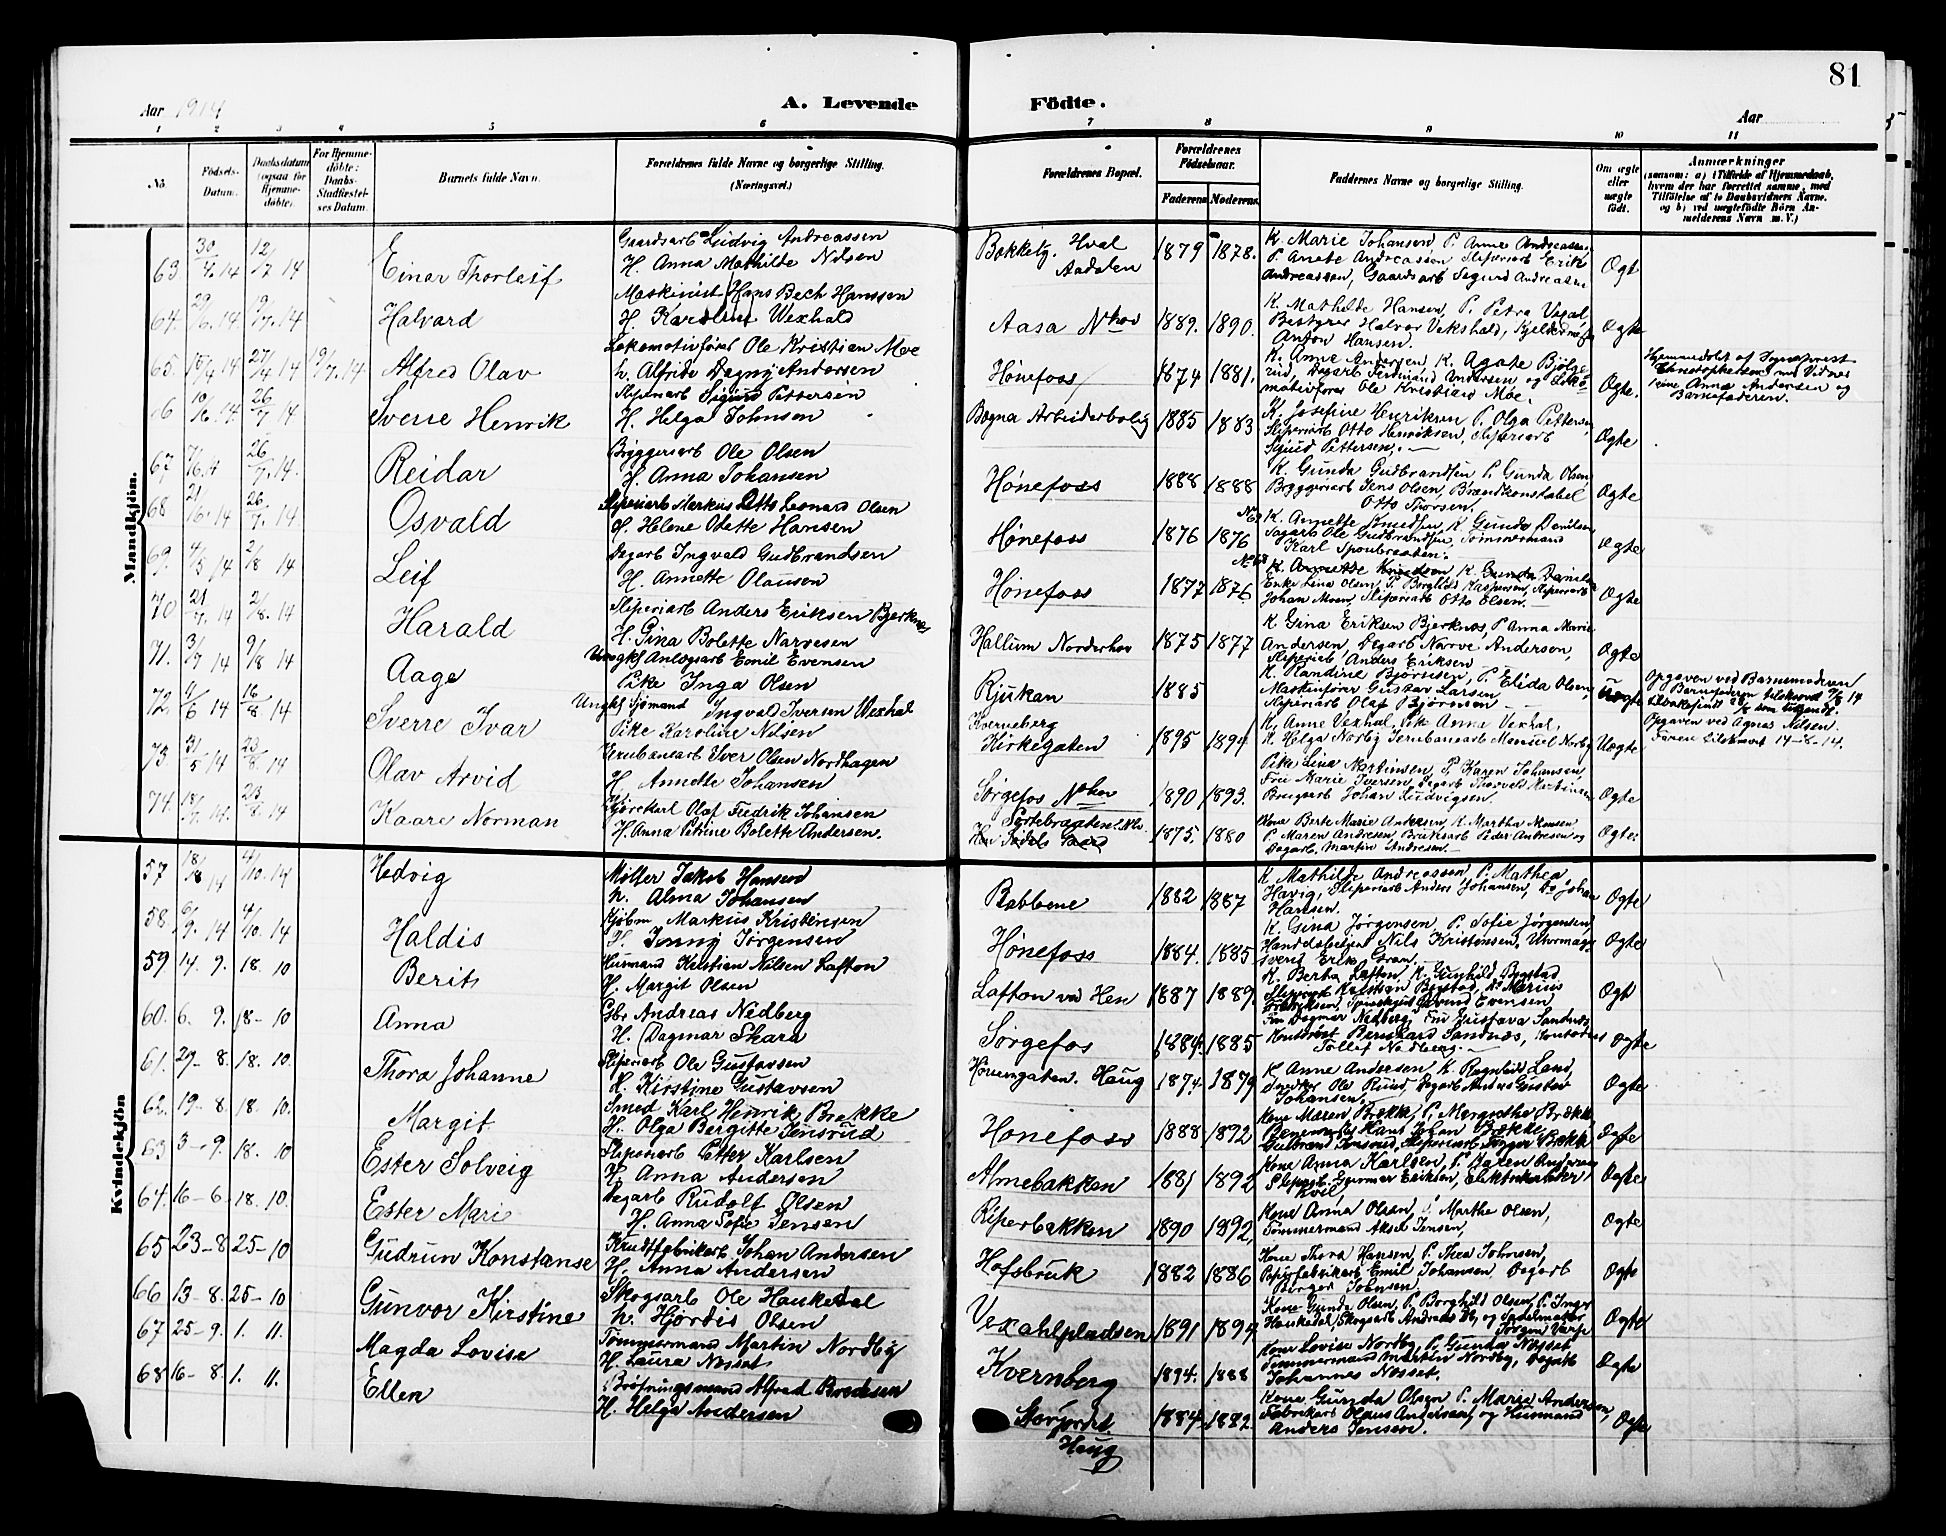 81
Aar 1914
A. Levende Födte.
Aar
1 2 3 4 5 6 7 8 9 10 11
No.
Födsels-Datum.
Daabsdatum (ogsaa for Hjemmedöbte)
For Hjemmedöbte: Daabs-Stadfæstelses Datum.
Barnets fulde Navn.
Forældrenes fulde Navne og borgerlige Stilling. (Næringsvei.)
Forældrenes Bopæl.
Forældrenes Födselsaar.
Faderens Moderens
Faddernes Navne og borgerlige Stilling.
Om ægte eller uægte födt.
Anmærkninger
(saasom: a) i Tilfælde af Hjemmedaab, hvem der har forrettet samme, med Tilföielse af to Daabsvidners Navne, og b) ved uægtefödte Börn Anmelderens Navn m. V.)
Mandkjön.
63 30/4 14 12/7 14 Einar Thorleif
Gaardsarb Ludvig Andreassen
H. Anna Mathilde Nilsen
Hval Aadalen 1879 1878.
K. Marie Johansen, P. Anne Andreassen
Andreassen, Gaardsarb Sigurd Andreassen
Ægte
64. 29/6 14 19/7 14 Halvard
Maskinist Hans Bech Hanssen
H. Karoline Wexhald
Aasa Nhov 1889. 1890.
K. Mathilde Hansen, P. Petra
Bestyrer Halvor
Anton Hansen.
Ægte
65. 15/4 14 27/4 14 19/7 14 Alfred Olav
Lokomotivförer Ole Kristian Moe
h. Alfride Dagny Andersen
Hönefoss 1874 1881.
K. Anne Andersen, K. Agate
Dagarb Ferdinand Andersen og Lokomotivförer Ole Kristian Moe.
Ægte.
Hjemmedöbt af Sogneprest
Christophersen med Vidner
Anna Andersen og
Barnefaderen.
6 19/6 14 26/7 14 Sverre Henrik
Slipearb Sigurd Pettersen
H. Helga Johnsen
Bægna Arbeiderbolig 1885 1883
K. Josefine Henriksen P. Olga Pettersen
Sliperiarb Otto Henriksen, Sliperiarb
Sigurd Pettersen.
Ægte
67 26/7 14. Reidar
Bryggeriarb Ole Olsen
H. Anna Johansen
Hønefoss 1888 1888
K. Gunda Gudbrandsen P. Gunda Olsen
Bryggeriarb Jens Olsen, Brandkonstabel
Otto Thorsen.
Ægte
68 21/6 14 26/7 14 Osvald
Sliperiarb Markus Otto Leonard Olsen
H. Helene Odette Hansen
Hønefoss 1876 1876
K. Annette Knudsen, K. Gunda Danielsen
Dagarb Ole Gudbrandsen, Tømmermand
Karl
Ægte
69. 4/5 14 2/8 14 Leif
Dagarb Ingvald Gudbrandsen
H. Annette Olausen
Hønefoss 1877 1876.
K. Annette Knudsen K. Gunda Danielsen
Enke Lina Olsen, P. Borghild Kaspersen, Sliperiarb
Johan Moen, Sliperiarb Otto Olsen.
Ægte
70 21/7 14 2/8. 14 Harald
Sliperiarb Anders Eriksen Bjerknes
H. Gina Bolette Narvesen
Hallum Norderhov 1875 1877
K. Gina Eriksen Bjerknes, P. Anna Marie
Andersen, Dagarb Narve Anderson,
Sliperiarb Anders Eriksen
Ægte
71. 3/7 14 9/8 14 Aage
Ungkf Anlægsarb Emil Evensen
Pike Inga Olsen
Rjukan 1885
K. Randine Bjørnsen, P. Elida Olsen,
Maskinförer Gustav Larsen
Sliperiarb Olaf Bjørnsen
Uægte
Opgaven ved Barnemoderen
72. 16/8 14 Sverre Ivar
Ungkf Sjømand Ingvald Iversen Wexhal
Pike Karoline Nilsen
Kverneberg
Kirkegaten 1895 1894
K. Anne Vexhal, Pik Anna Vexhal,
K. Helga Norby Jernbanearb Manuel Norby
Uægte
Opgaven ved Agnes Nilsen.
14-8-14.
73 31/5 14 23/8 14 Olav Arvid
Jernbanearb Iver Olsen Nordhagen
H. Annette Johansen
Sørgefos Nhov 1890 1893.
Pike Lina Martinsen, P. Karen Johansen,
Fru Marie Iversen, Dagarb Thorvald Martinsen
Brugsarb Johan Ludvigsen
Ægte
74 18/7 14. 23/8 14 Kaare Norman
Kjørekarl Olaf Fredrik Johansen
H. Anna Petrine Bolette Andersen.
1875. 1880
Kone Berte Marie Andersen, K. Martha Monsen
P. Maren Andresen, Bruksarb Peder Andresen og
Dagarb. Martin Andresen.
Ægte.
Kvindekjön
57 18/8 14 4/10. 14 Hedvig
Møller Jakob Hansen
h. Alma Johansen
Bobbene 1882 1887
K. Mathilde Andreassen, P. Mathea
Hævig, Sliperiarb Anders Johansen, Do Johan
Hansen.
Ægte
58. 6/9. 14 4/10. 14 Haldis
Kjøbm Markus Kristensen
H. Jenny Jørgensen
Hönefoss 1884. 1885
K. Gina Jørgensen, P. Sofie Jørgensen,
Nils Kristensen, Uhrmager
Erik Gran.
Ægte
59 14. 9. 18. 10 Berit
Husmand Kristian Nilsen Lafton
H. Margit Olsen
Lafton ved Hen 1887 1889.
K. Berta Lafton, K. Gunhild Bagstad
Sliperiarb Kristian Bagstad, Do Marius
Fredriksen, Evensen
Ægt
60. 6. 9. 18- 10 Anna
Gbr Andreas Nedberg
H. Dagmar Skara
Sørgefos 1884. 1885
Fru Dagmar Nedberg, Fru Gustava Sandnæs
Bernhard Sandnæs,
Tollef Nedberg.
Ægte
61. 29- 8. 18. 10. Thora Johanne
Sliperiarb Ole Gustavsen
K. Kirstine Gustavsen
Haug 1874. 1879
K. Anne Andersen, K. Ragnhild Lans,
Snedker Ole Ruud, Dagarb Anders Gustav
Johansen.
Ægte
62. 19- 8. 18. 10. Margit
Smed Karl Henrik Brekke
H. Olga Bergitte Jensrud
Honefoss 1888 1892
Kone Maren Brækk, P. Margrethe Brækk
Banemester Hans Johan Brække
Gulbrand Jensrud, Sliperiarb Brækk
Ægte
63 3- 9. 18. 10 Ester Solveig
Sliperiarb Petter Karlsen
H. Anna Andersen
Almebakken 1881 1892
Kone Anna Karlsen, P. Karen Andersen
Sliperiarb. Gunnar Eriksen,
Ægte
64. 16- 6. 18. 10. Ester Mari
Dagarb Rudolf Olsen
H. Anna Sofie Jensen
Riperbakken 1890 1892,
Kone Anna Olsen, P. Marthe Olsen,
Tømmermand Aksel Jensen,
Ægte
65 23-8 25- 10 Gudrun Konstanse
Krudtfabrikarb Johan Andersen
H. Anna Andersen
Hofsbruk 1882 1886
Kone Thora Hansen, P. Thea Johnsen,
Papirfabrikarb Emil Johansen Dagarb
Børger Johnsen
Ægte
66 13- 8. 25- 10 Gunvor Kirstine
Skogsarb Ole Haukedal
h. Hjørdis Olsen
Vexahlpladsen 1891 1894
Kone Gunda Olsen, P. Borghild Olsen, P. Inger
Haukedal, Skogsarb Andreas Do, og
Jørgen Varp
Ægte
67 25-9. 1. 11. Magda Lovise
Tømmermand Martin Nordby
H. Laura Næsset
Kvernberg 1894. 1888
Kone Lovise Nordby, P. Gunda Næsset
Tømmermand Martin Nordby, Dagarb
Johannes Næsset.
Ægte
68 16- 8. 1. 11. Ellen
Alfred Bredesen
H. Helga Andersen
Storjordet
Haug 1884 1882.
Kone Gunda Olsen P. Marie Andersen,
Fabrikarb Olaus Andersen, og Husmand
Anders Jensen.
Ægte